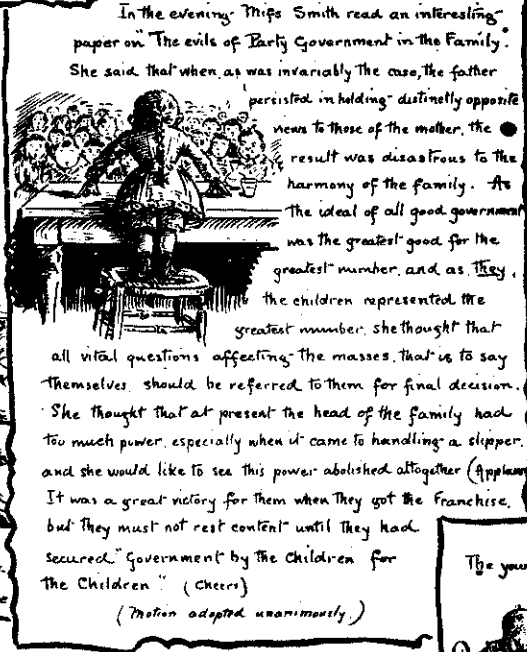 In the evening Miss Smith read an interesting
paper on "The evils of Party Government in the Family".
She said that when, as was invariably the case, the father
persisted in holding distinctly opposite
views to those of the mother, the
result was disastrous to the
harmony of the family. As
the ideal of all good government
was the greatest good for the
greatest number, and as they,
the children represented the
greatest number, she thought that
all vital questions affecting the masses, that is to say
themselves, should be referred to them for final decision.
She thought that at present the head of the family had
too much power, especially when it came to handling a slipper,
and she would like to see this power abolished altogether (Applaus
It was a great victory for them when they got the Franchise,
but they must not rest content until they had
secured "Government by the Children for
the Children". (Cheers)
(Motion adopted unanimously.)
The you